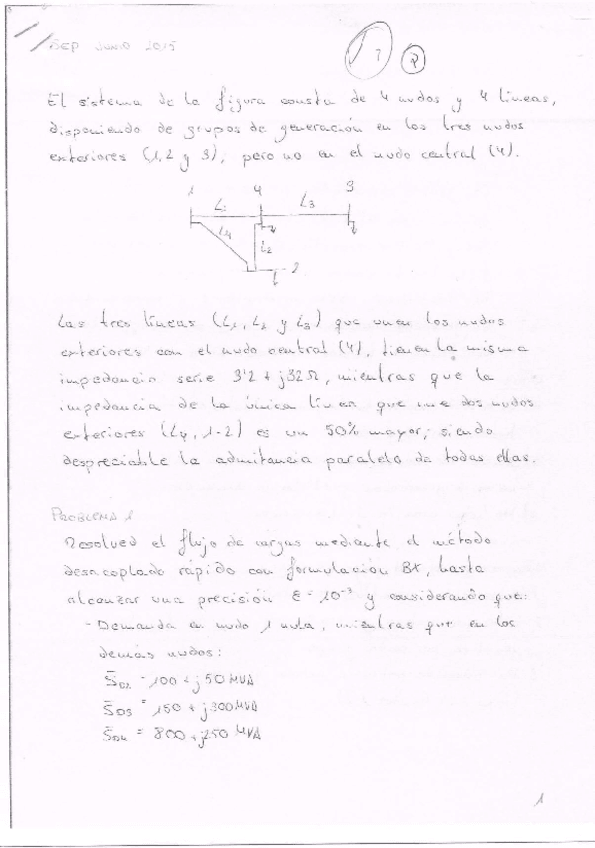 SEP JUNIO 2015
El sistema de la figura consta de 4 nudos y 4 líneas,
disponiendo de grupos de generación en los tres nudos
exteriores (1, 2 y 3), pero no en el nudo central (4).
1 4 3
L1 L3
L4 L2
2
Las tres líneas (L1, L2 y L3) que unen los nudos
exteriores con el nudo central (4), tienen la misma
impedancia serie 3'2 + j32Ω, mientras que la
impedancia de la única línea que une dos nudos
exteriores (L4, 1-2) es un 50% mayor; siendo
despreciable la admitancia paralelo de todas ellas.
PROBLEMA 1
Resolved el flujo de cargas mediante el método
desacoplado rápido con formulación BX, hasta
alcanzar una precisión ε = 10⁻³ y considerando que:
- Demanda en nudo 1 nula, mientras que en los
demás nudos:
S̄D2 = 100 + j50 MVA
S̄D3 = 150 + j300 MVA
S̄D4 = 800 + j250 MVA
1